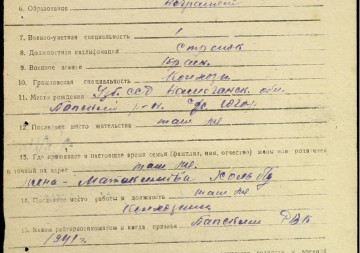 6. Образование неграмотн
7. Военно-учетная специальность 1
8. Должностная квалификация стрелок
9. Военное звание Красн.
10. Гражданская специальность Колхозн
11. Место рождения Узб. ССР Наманганск. обл.
Папский р-он.
12. Последнее место жительства там же
13. Где проживает в настоящее время семья (фамилия, имя, отчество) жены или родителей
и точный их адрес там же.
жена -
14. Последнее место работы и должность там же
Колхозник
15. Каким райвоенкоматом и когда призван Папским РВК
1941 г.